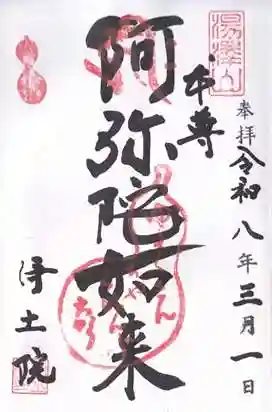 奉拝 令和八年三月一日
湯澤山
本尊
阿弥陀如来
浄土院